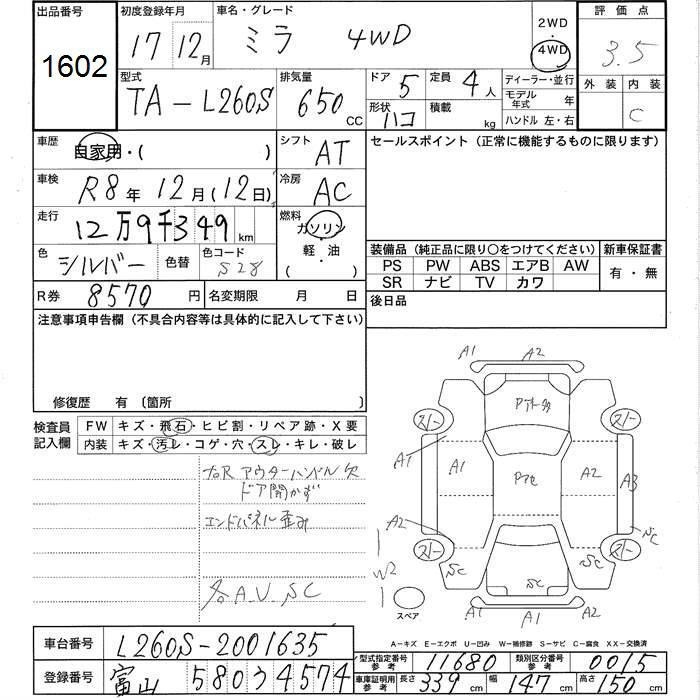 出品番号
1602
初度登録年月
17 12月
車名・グレード
ミラ 4WD
2WD
・
4WD
評価点
3.5
外装 内装
C
型式
TA-L260S
排気量
650 CC
ドア 5
定員 4人
形状 ハコ
積載 kg
ディーラー・並行
モデル年式 年
ハンドル 左・右
車歴
自家用・( )
シフト AT
セールスポイント (正常に機能するものに限ります)
車検
R8年 12月(12日)
冷房 AC
走行
12万9千349 km
燃料
ガソリン
軽・油
( )
色
シルバー
色替
色コード
S28
装備品 (純正品に限り○をつけてください)
PS PW ABS エアB AW
SR ナビ TV カワ
新車保証書
有・無
R券 8570円
名変期限 月 日
後日品
注意事項申告欄 (不具合内容等は具体的に記入して下さい)
修復歴 有 (箇所
検査員記入欄
FW キズ・飛石・ヒビ割・リペア跡・X要
内装 キズ・汚レ・コゲ・穴・スレ・キレ・破レ
右R アウターハンドル欠
ドア開かず
エンドパネル歪み
各A.U.SC
A1 A2
A1 A1 A2 A3
A2 SC
W2
SC SC SC
A1 A1 A2
スペア
A-キズ E-エクボ U-凹み W-補修跡 S-サビ C-腐食 XX-交換済
車台番号 L260S-2001635
登録番号 富山 580 う 4574
型式指定番号 参考 11680
類別区分番号 参考 0015
車庫証明用 参考 長さ 339cm 幅 147cm 高さ 150cm